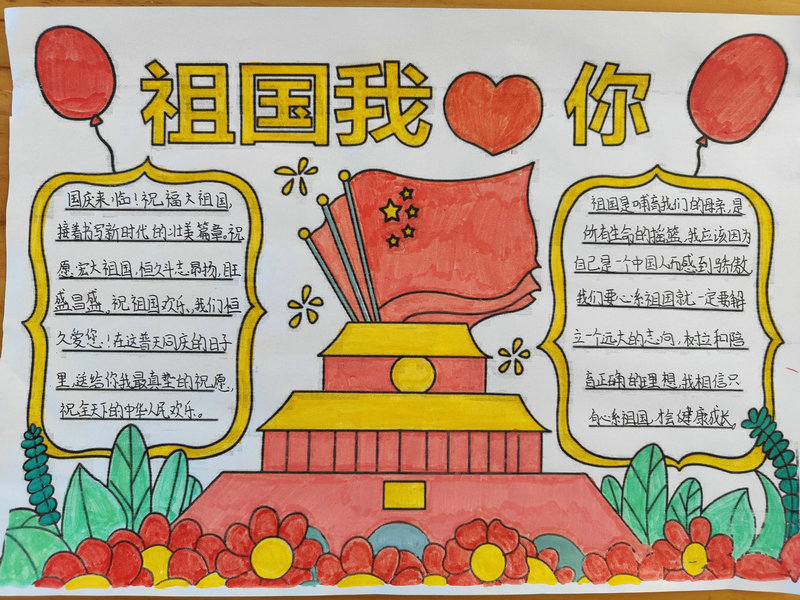 祖国我❤你
国庆来临!祝福大祖国,
接着书写新时代的壮美篇章。祝
愿宏大祖国,恒久斗志昂扬,旺
盛昌盛。祝祖国欢乐、我们恒
久爱您!在这普天同庆的日子
里,送给你我最真挚的祝愿,
祝全天下的中华人民欢乐。
祖国是哺育我们的母亲,是
所有生命的摇篮,我应该因为
自己是一个中国人而感到骄傲
我们要心系祖国就一定要
立一个远大的志向,树立和
真正确的理想,我相信只
有心系祖国,才会健康成长。